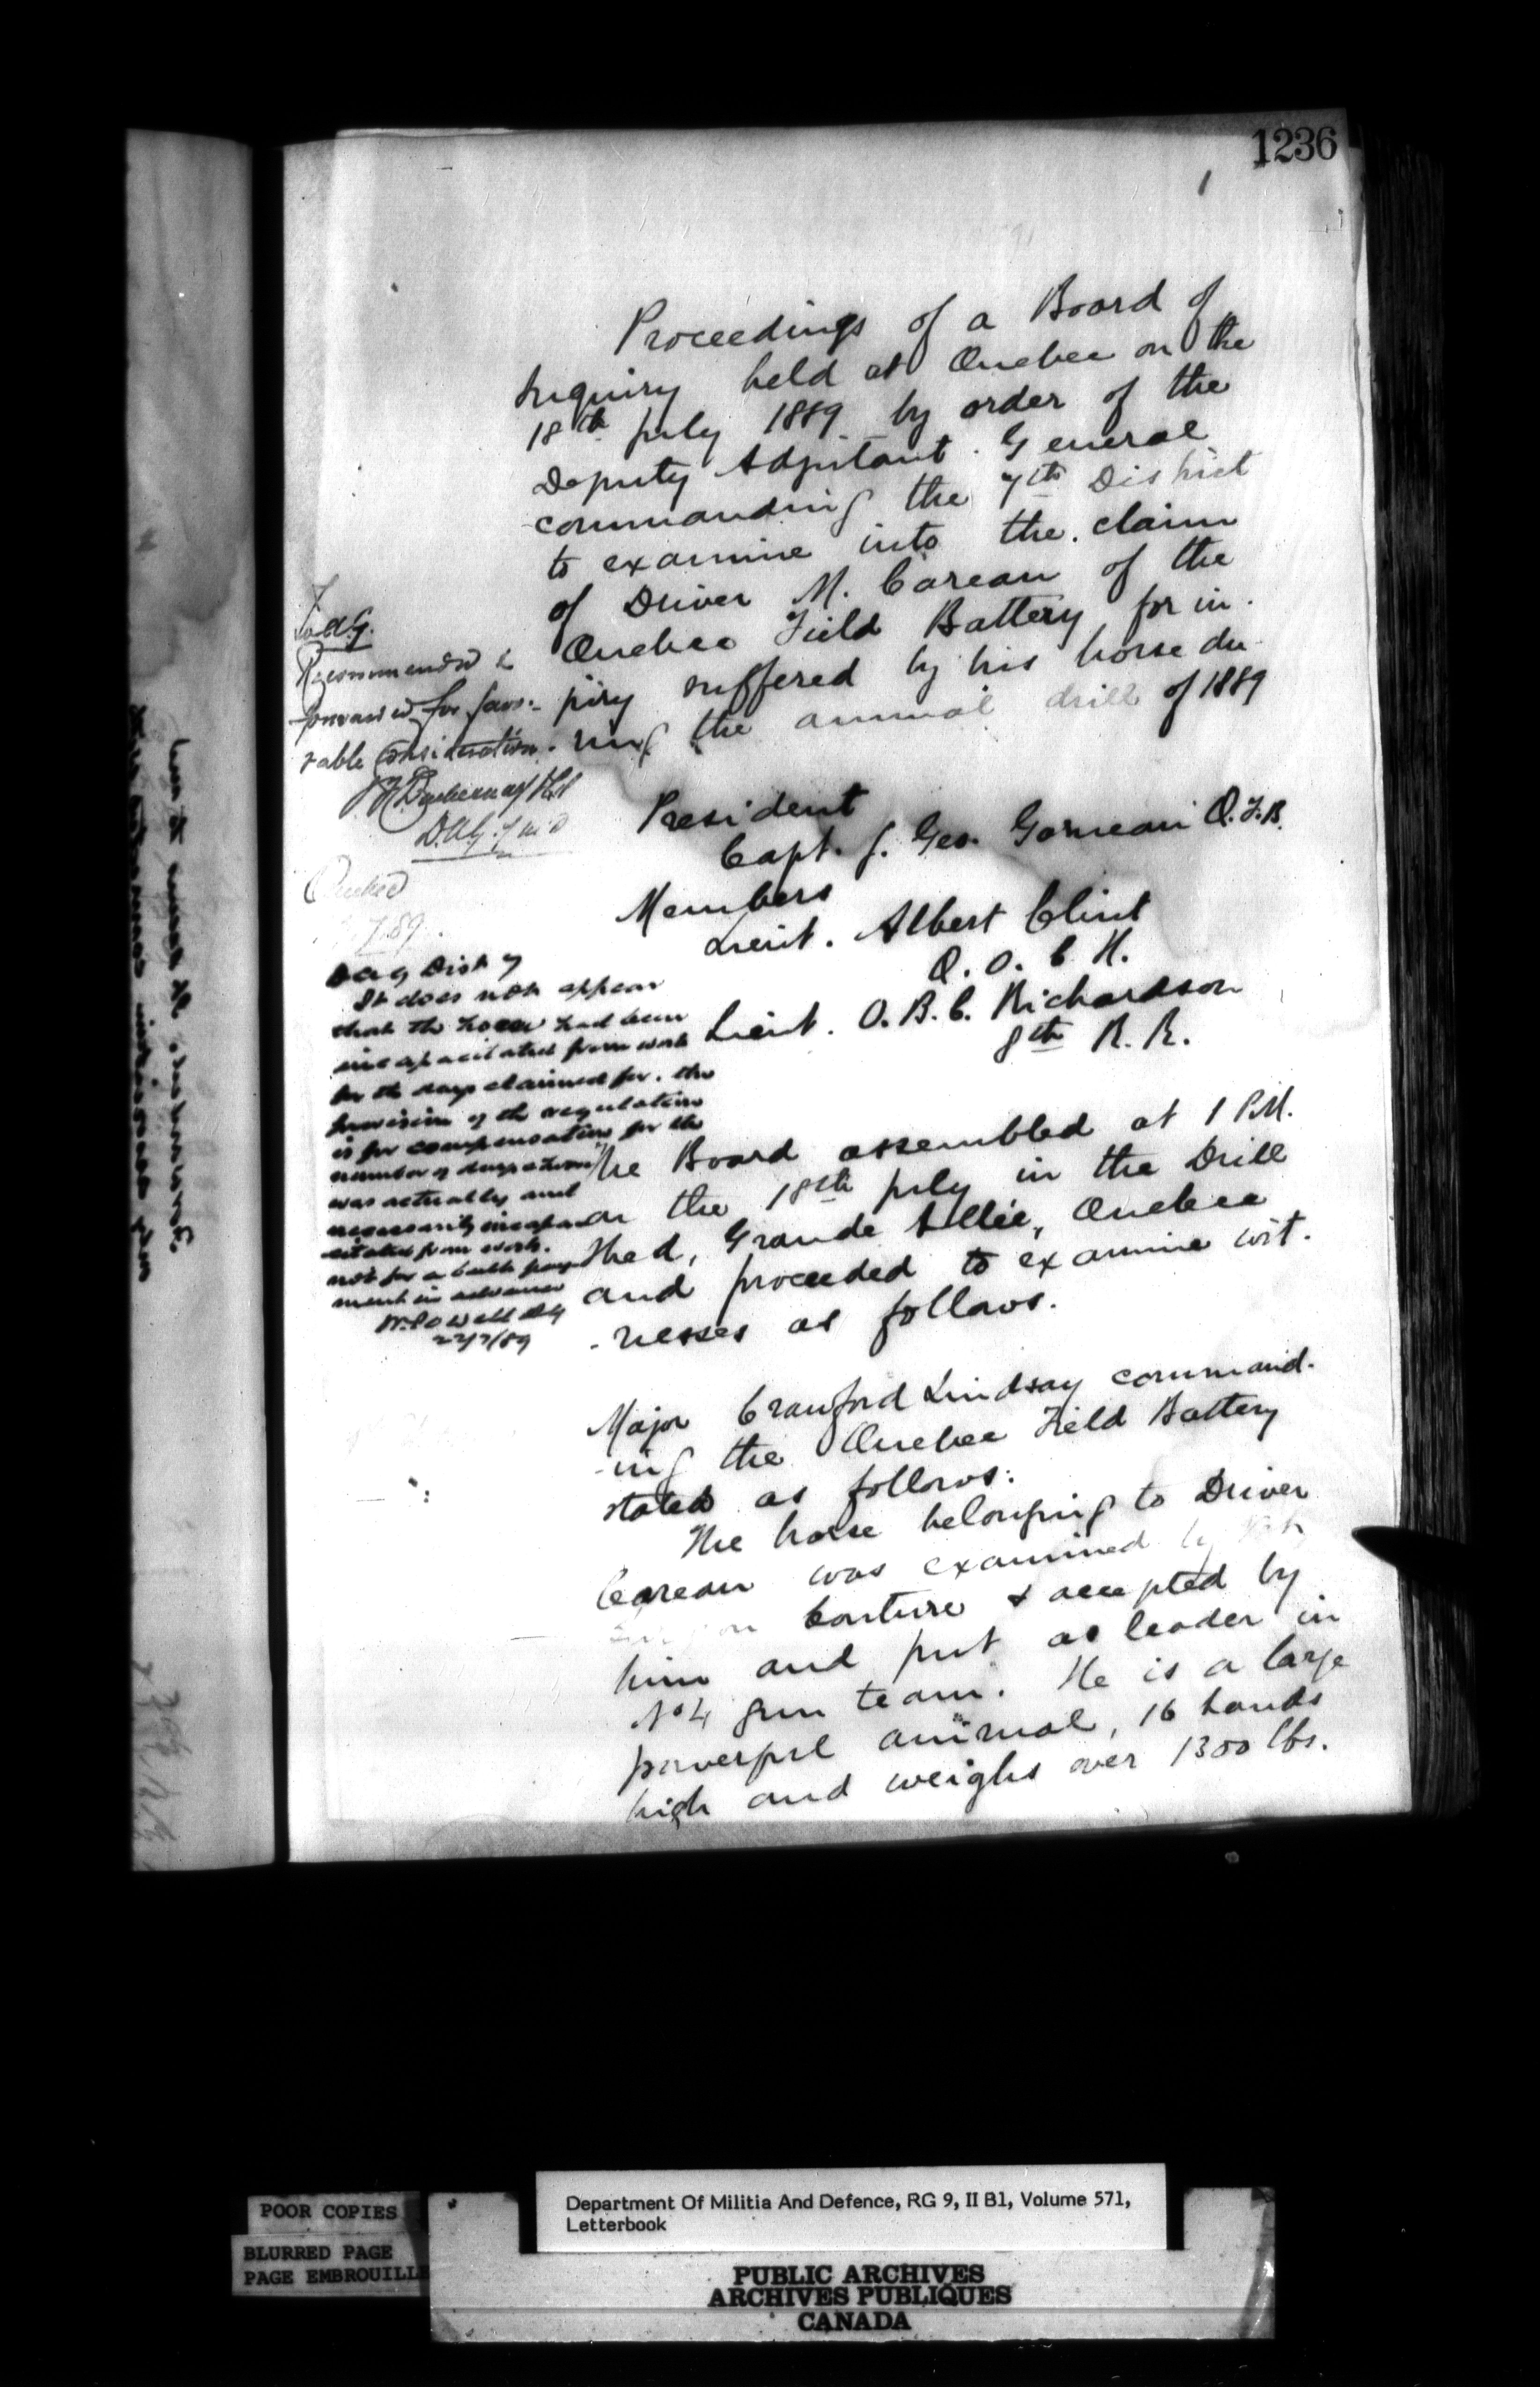 1236
1
Proceedings of a Board of
Inquiry held at Quebec on the
18th July 1889 by order of the
Deputy Adjutant General
commanding the 7th District
to examine into the claim
of Driver M. Careau of the
Quebec Field Battery for in-
jury suffered by his horse du-
ring the annual drill of 1889
President
Capt. J. Geo. Garneau Q.F.B.
Members
Lieut. Albert Clint
Q. O. C. H.
Lieut. O. B. C. Richardson
8th R. R.
The Board assembled at 1 P.M.
on the 18th July in the Drill
Shed, Grande Allée, Quebec
and proceeded to examine wit-
-nesses as follows.
Major Crawford Lindsay command-
-ing the Quebec Field Battery
stated as follows:
The horse belonging to Driver
Careau was examined by
Couture & accepted by
him and put as leader in
No 4 gun team. He is a large
powerful animal, 16 hands
high and weighs over 1300 lbs.
AG.
Recommended &
forwarded for favo-
rable consideration.
D.A.G. 7 M D
Quebec
7.89.
DAG Dist 7
It does not appear
that the horse had been
incapacitated from work
for the days claimed for. the
provision of the regulation
is for compensation for the
number of days a horse
was actually and
necessarily incapa
citated from work.
not for a bulk pay
ment in advance
W. Powell AG
22/7/89
POOR COPIES
BLURRED PAGE
PAGE EMBROUILLE
Department Of Militia And Defence, RG 9, II B1, Volume 571,
Letterbook
PUBLIC ARCHIVES
ARCHIVES PUBLIQUES
CANADA